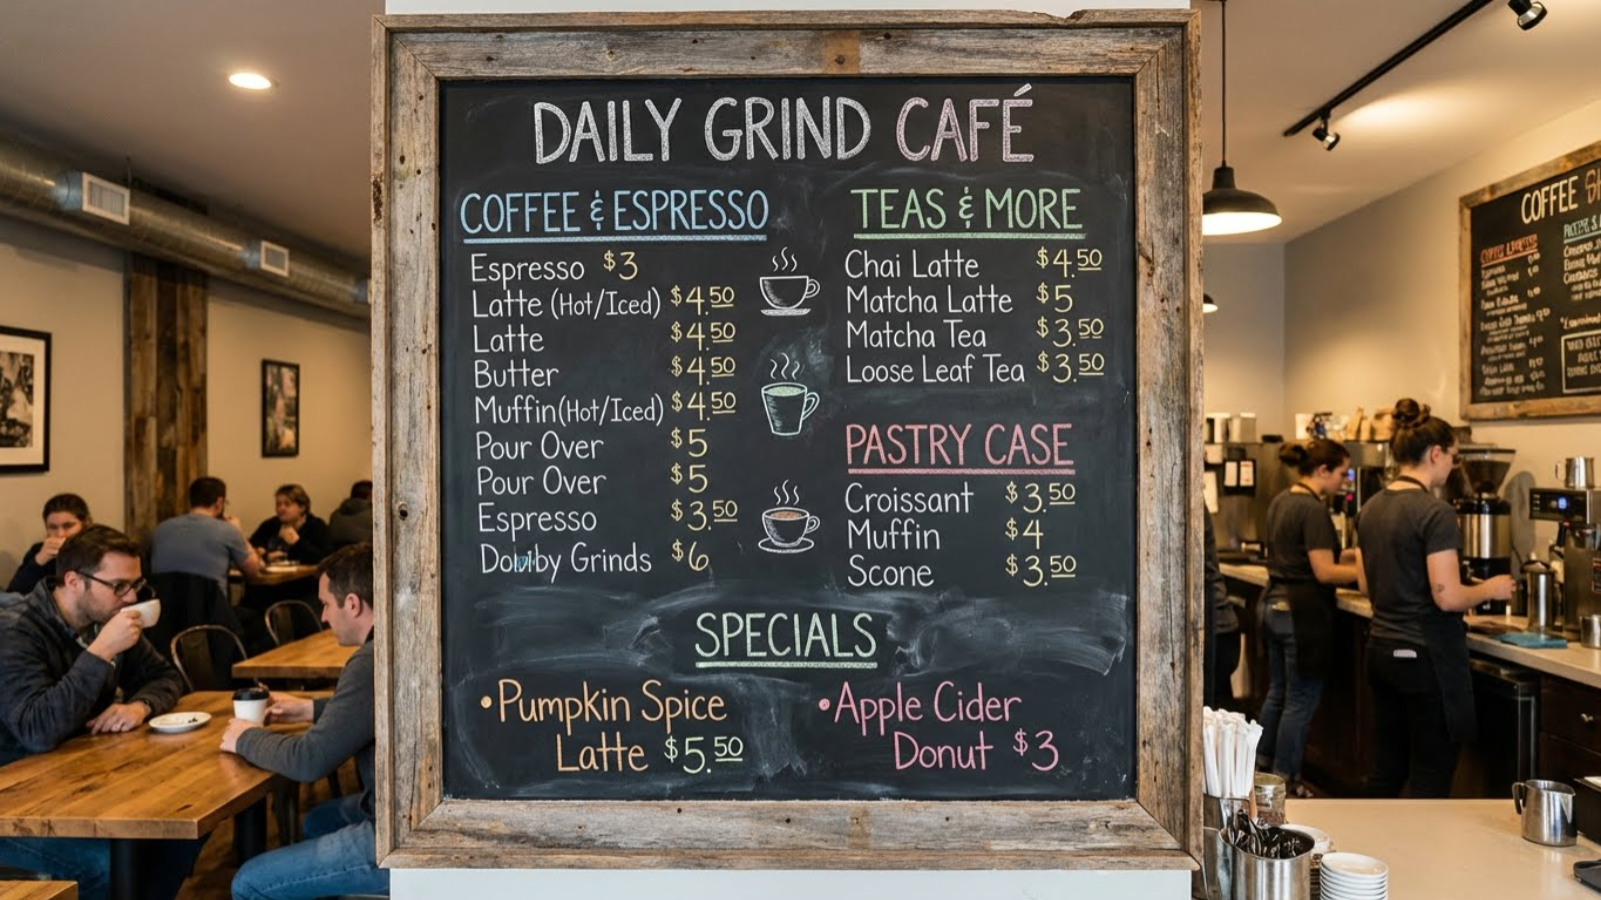 DAILY GRIND CAFÉ
COFFEE & ESPRESSO
Espresso $3
Latte (Hot/Iced) $4.50
Latte $4.50
Butter $4.50
Muffin (Hot/Iced) $4.50
Pour Over $5
Pour Over $5
Espresso $3.50
Grinds $6
TEAS & MORE
Chai Latte $4.50
Matcha Latte $5
Matcha Tea $3.50
Loose Leaf Tea $3.50
PASTRY CASE
Croissant $3.50
Muffin $4
Scone $3.50
SPECIALS
• Pumpkin Spice
Latte $5.50
• Apple Cider
Donut $3
COFFEE